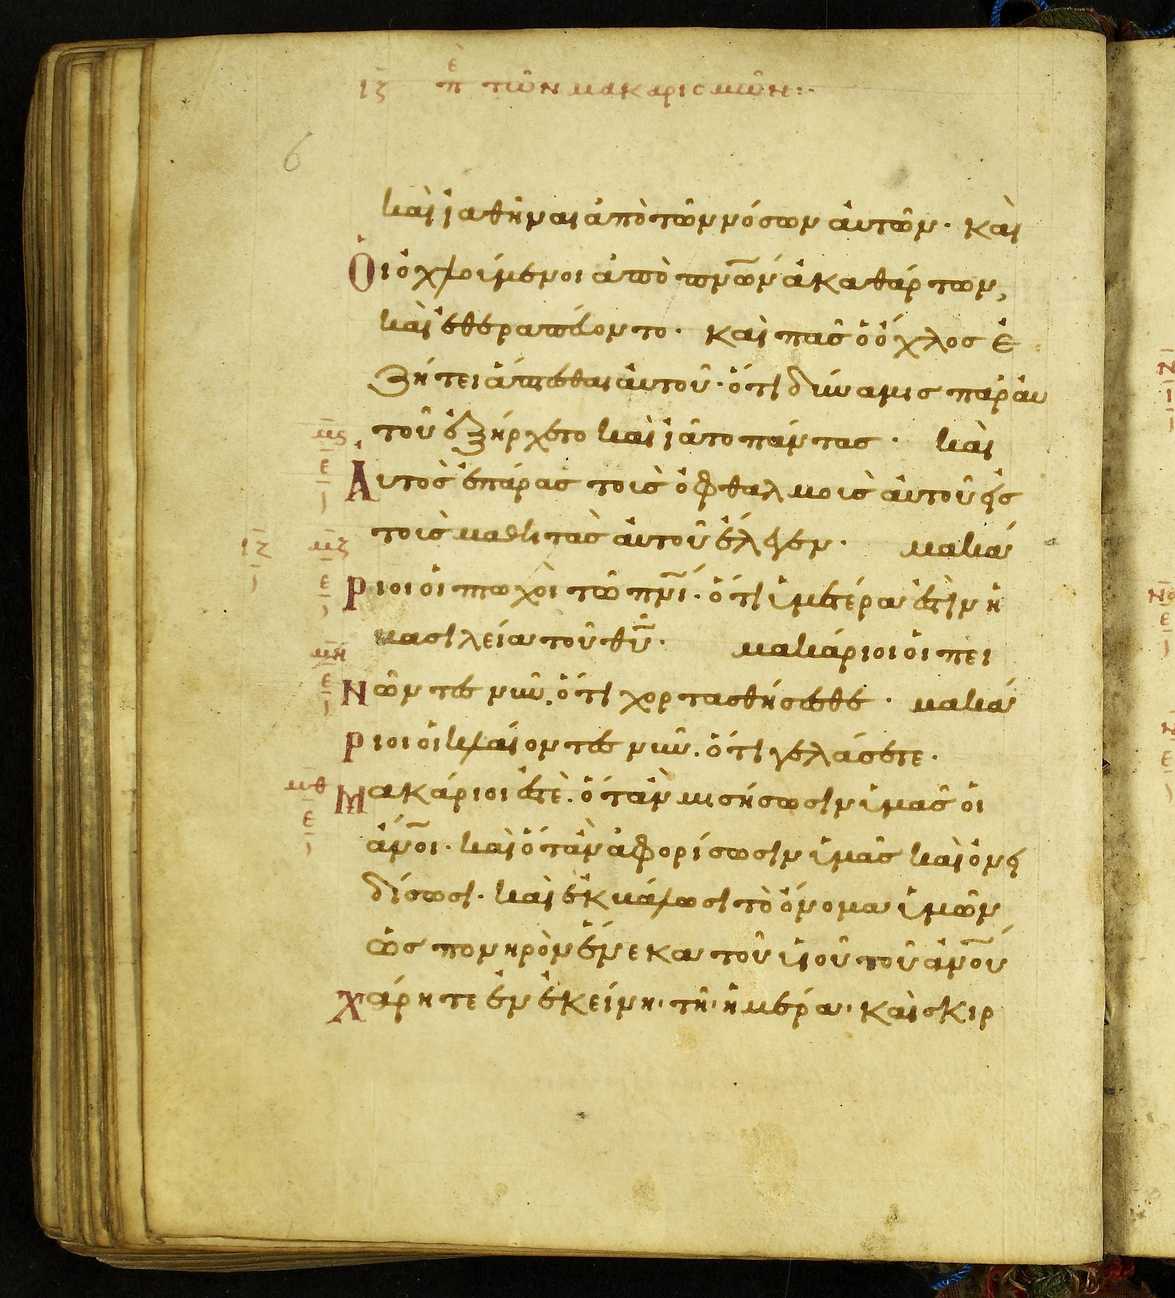 ιζ πε τῶν μακαρισμῶν:·
6
καὶ ἰαθῆναι ἀπὸ τῶν νόσων ἀυτῶν· καὶ
Ὁι ὀχλούμενοι ἀπὸ πνῶν ἀκαθάρτων,
καὶ ἐθεραπέυοντο· καὶ πᾶς ὁ ὄχλος ἐ
ζήτει ἅπτεσθαι ἀυτοῦ· ὅτι δύναμις παρ ἀυ
μς τοῦ ἐξήρχετο καὶ ἰᾶτο πάντας· καὶ
ε Ἀυτὸς ἐπάρας τοὺς ὀφθαλμοὺς ἀυτοῦ εἰς
ιζ μζ τοὺς μαθητὰς ἀυτοῦ ἔλεγεν· μακά
ε ριοι οἱ πτωχὸι τῶ πνι· ὅτι ὑμετέρα ἐστὶν ἡ
μη βασιλεία τοῦ θυ· μακάριοι οἱ πει
ε νῶντες νῦν. ὅτι χορτασθήσεσθε· μακά
ριοι οἱ κλαίοντες νῦν. ὅτι γελάσετε·
μθ Μακάριοι ἐστὲ. ὅταν μισήσωσιν ὑμᾶς οἱ
ε ἄνοι· καὶ ὅταν ἀφορίσωσιν ὑμᾶς καὶ ὀνει
δίσωσι· καὶ ἐκβάλωσι τὸ ὄνομα ὑμῶν
ὡς πονηρὸν ἕνεκα τοῦ υἱοῦ τοῦ ἀνου
Χάρητε ἐν ἐκείνη· τῆ· ἡμέρα· καὶ σκιρ